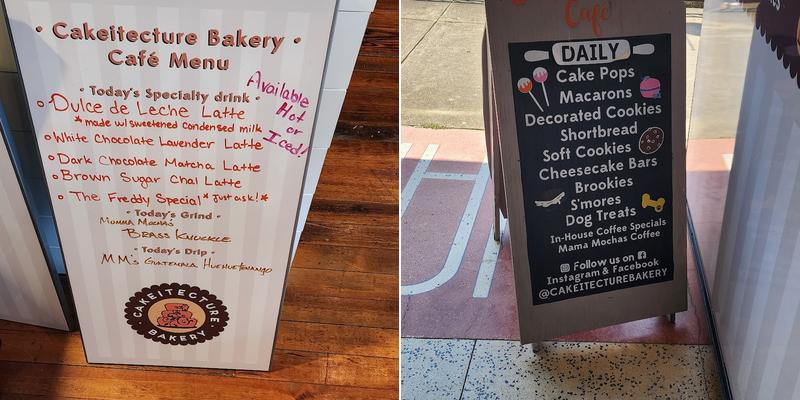 • Cakeitecture Bakery •
Café Menu
• Today's Specialty drink •
Dulce de Leche Latte
*made w/sweetened condensed milk
White Chocolate Lavender Latte
Dark Chocolate Matcha Latte
Brown Sugar Chai Latte
The Freddy Special *just ask!*
Available
Hot
or
Iced!
• Today's Grind •
Momma Mocha's
Brass Knuckle
• Today's Drip •
MM's Guatemala Huehuetenango
CAKEITECTURE
BAKERY
Café
DAILY
Cake Pops
Macarons
Decorated Cookies
Shortbread
Soft Cookies
Cheesecake Bars
Brookies
S'mores
Dog Treats
In-House Coffee Specials
Mama Mochas Coffee
Follow us on
Instagram & Facebook
@CAKEITECTUREBAKERY